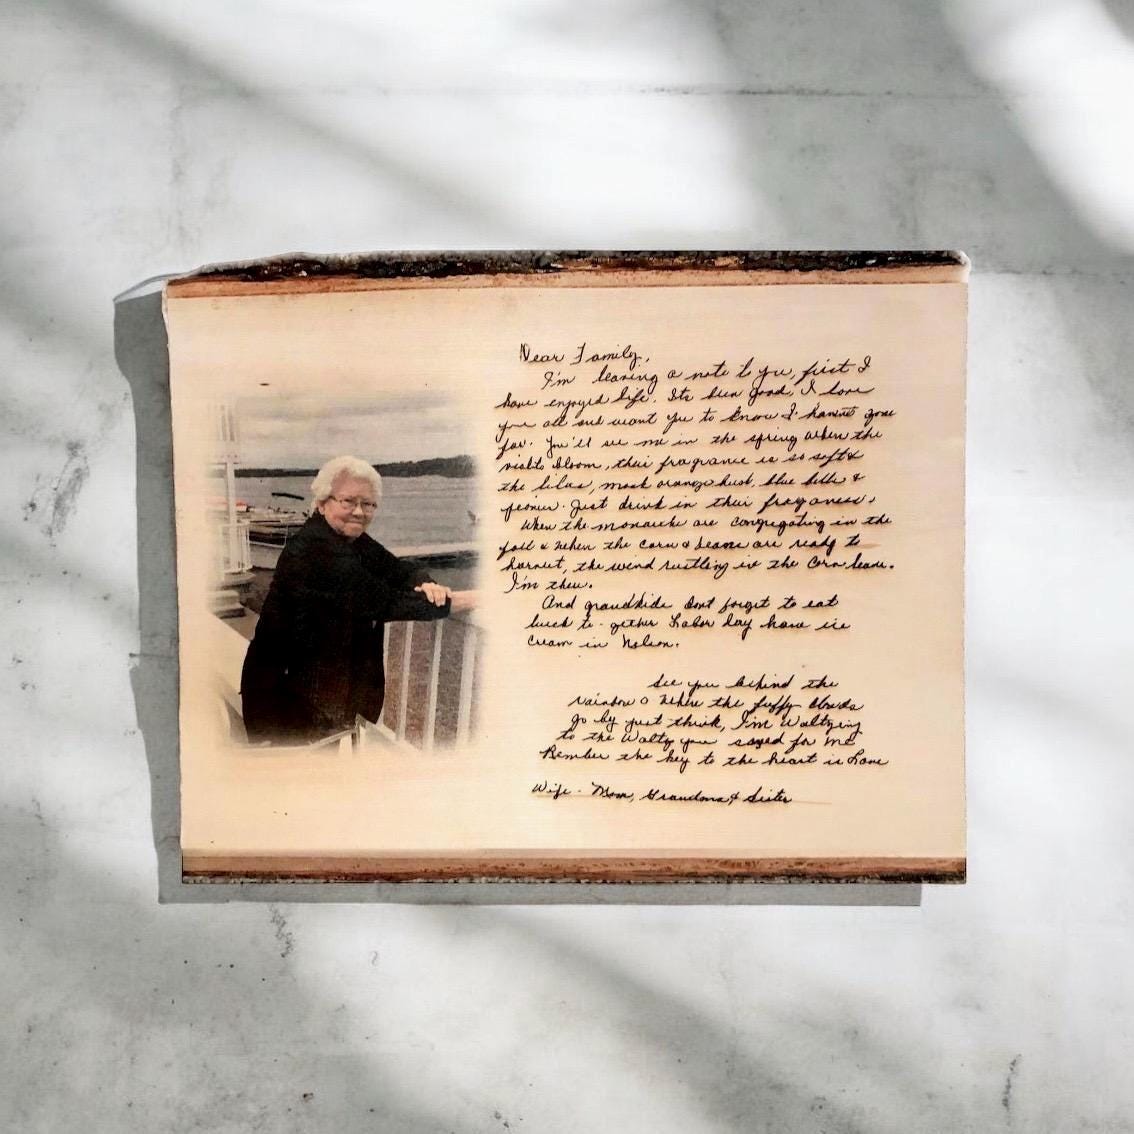 Dear Family,
I'm leaving a note to you, first I
have enjoyed life. Its been good, I love
you all and want you to know I haven't gone
far. You'll see me in the spring when the
violits bloom, their fragrance is so soft &
the lilas, mock orange bush, blue bells &
peonies. Just drink in their fragrances.
When the monarchs are congregating in the
fall & when the corn & beans are ready to
harvest, the wind rustling in the corn leave.
I'm there.
And grandkids dont forget to eat
lunch to-gether Labor day have ice
cream in Nelson.
See you behind the
rainbow & where the fuffy clouds
go by just think, I'm waltzing
to the waltz you saved for me
Rember the key to the heart is Love
Wife - Mom, Grandma & Sister